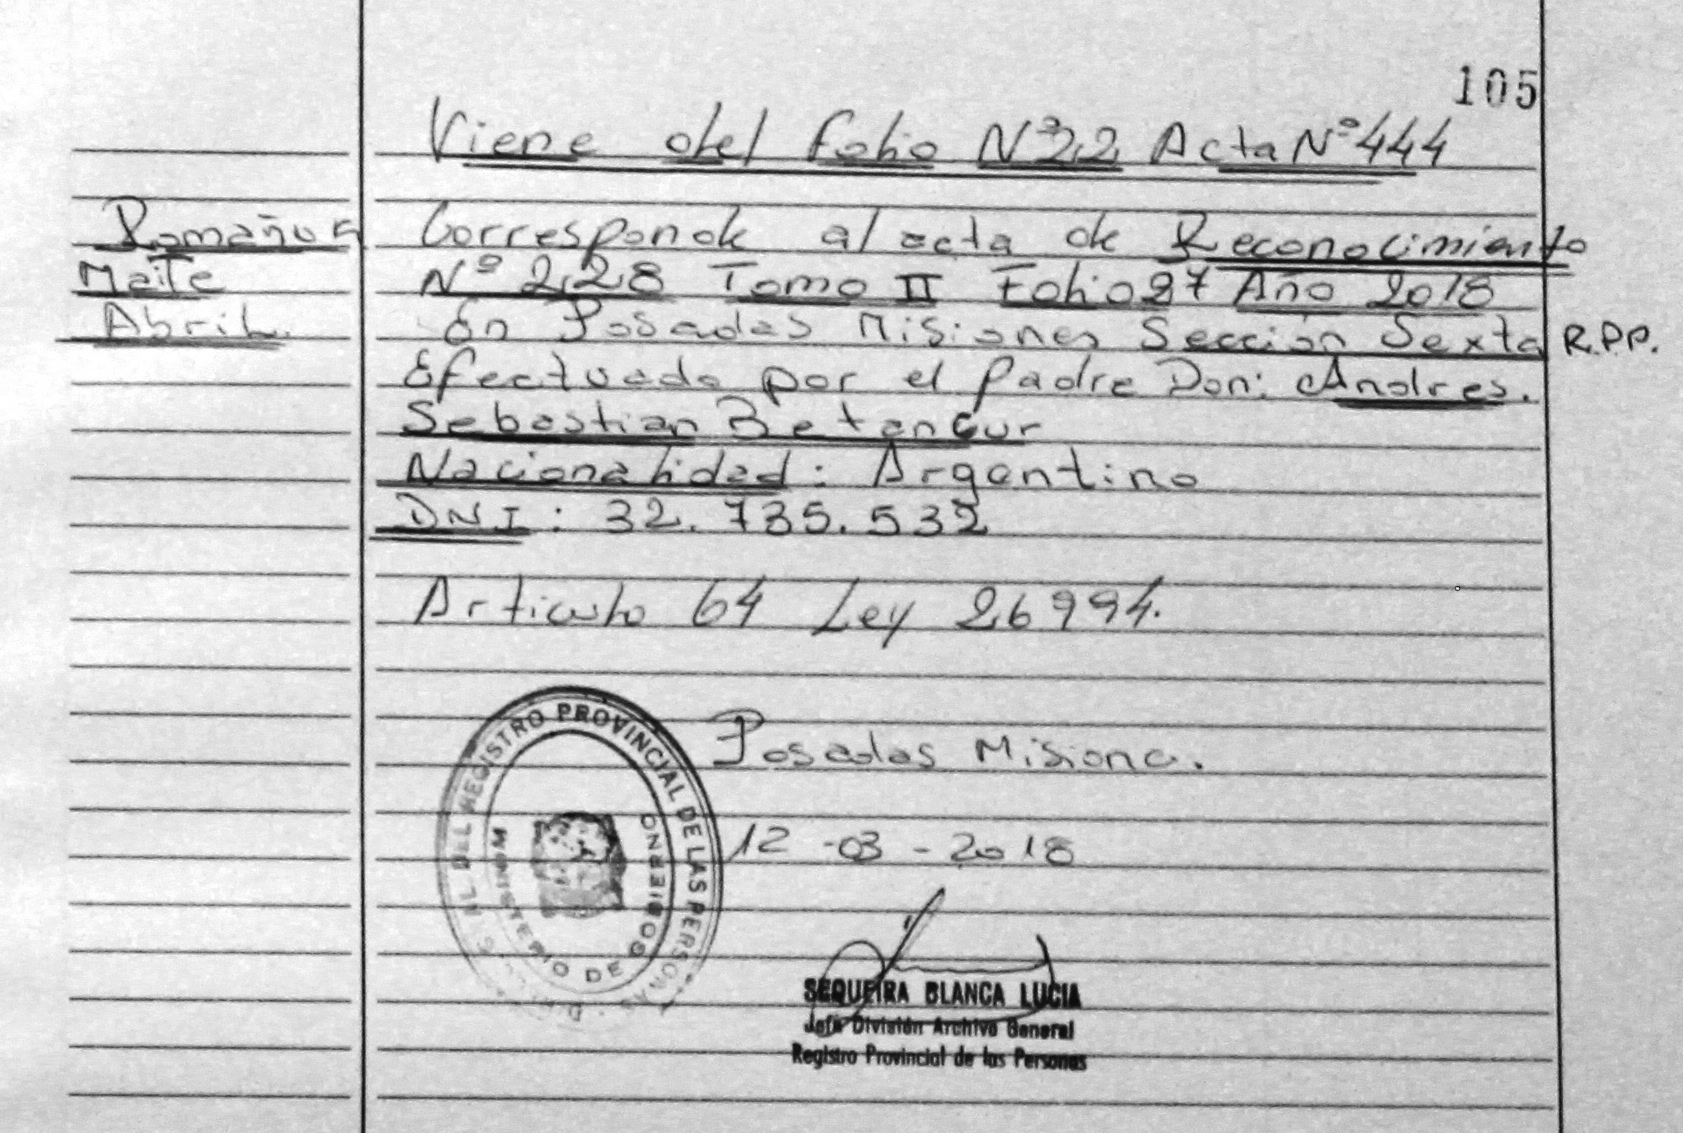 105
Viene del folio Nº 22 Acta Nº 444
Romañuk
Maite
Abril.
Corresponde al acta de Reconocimiento
Nº 228 Tomo II Folio 27 Año 2018
En Posadas Misiones Sección Sexta R.P.P.
Efectuado por el Padre Don: Andres.
Sebastian Betancur
Nacionalidad: Argentino
DNI: 32.735.532
Articulo 64 Ley 26994.
DEL REGISTRO PROVINCIAL DE LAS PERSONAS
MINISTERIO DE GOBIERNO
Posadas Misione.
12-03-2018
SEQUEIRA BLANCA LUCIA
Jefa División Archivo General
Registro Provincial de las Personas